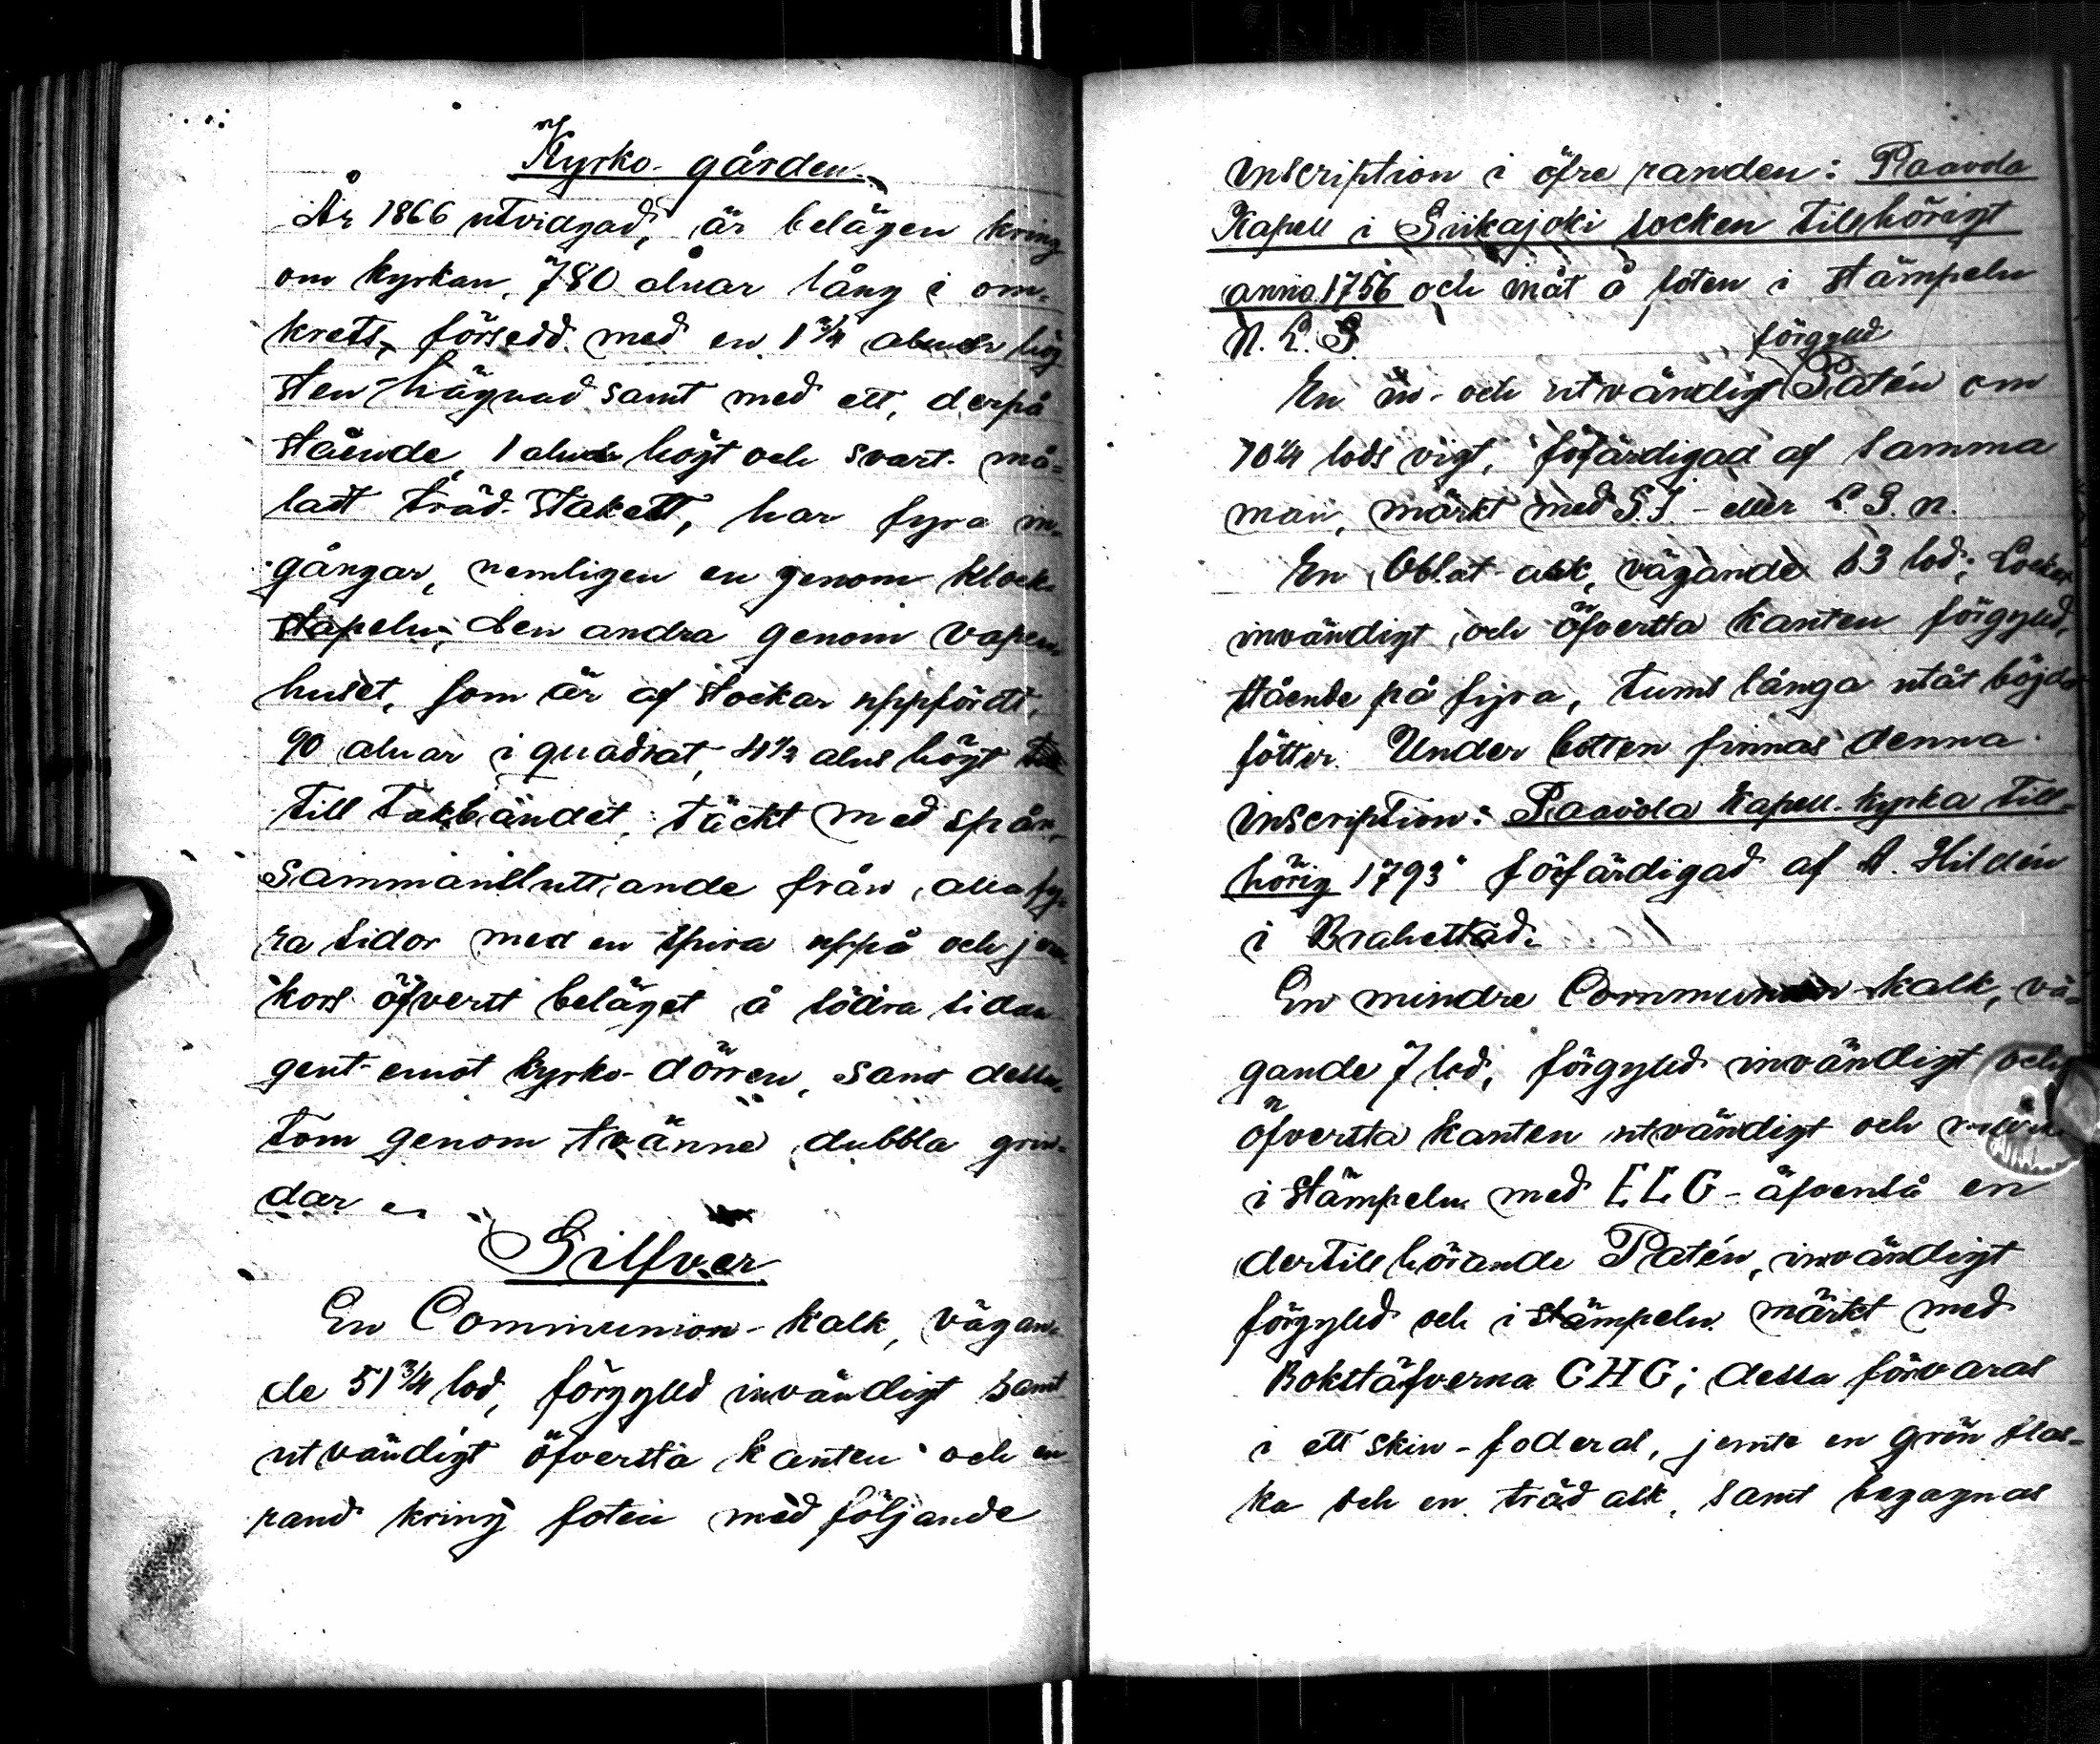 Kyrko-gården
År 1866 utvidgad, är belägen kring
om kyrkan, 780 alnar lång i om-
krets, försedd med en 1 3/4 alnar hög
sten-hägnad samt med ett, derpå
stående, 1 aln högt och svart må-
ladt träd-stakett, har fyra in-
gångar, nemligen en genom klock-
stapeln, den andra genom vapen-
huset, som är af stockar uppfördt,
90 alnar i quadrat, 4 1/2 alns högt
till takbandet, täckt med spån,
sammansluttande från alla fy-
ra sidor med en spira uppå och jern
kors öfverst beläget å södra sidan
gent-emot kyrko-dörren, samt dessu-
tom genom tvänne dubbla grin-
dar
Silfver
En Communion-kalk, vägan-
de 51 3/4 lod, förgylld invändigt samt
utvändigt öfversta kanten och en
rand kring foten med följande
inscription i öfre randen: Paavola
Kapell i Siikajoki socken tillhörigt
anno 1756 och inåt å foten i stämpeln
N. L. S.
förgylld
En in- och utvändigt Patén om
10 1/4 lods vigt, förfärdigad af samma
man, märkt med S.S. - eller L. S. N.
En Oblat-ask, vägande 63 lod; Locket
invändigt och öfversta kanten förgylld,
stående på fyra, tums långa utåt böjda
fötter. Under botten finnas denna
inscription: Paavola Kapell-kyrka till-
hörig 1793 förfärdigad af A. Hildén
i Brahestad.
En mindre Communion-kalk, vä-
gande 7 lod, förgylld invändigt och
öfversta kanten utvändigt och märkt
i stämpeln med ELG - äfvenså en
dertill hörande Patén, invändigt
förgylld och i stämpeln märkt med
Bokstäfverna CHG; dessa förvaras
i ett skin-foderal, jemte en grön flas-
ka och en träd ask, samt begagnas